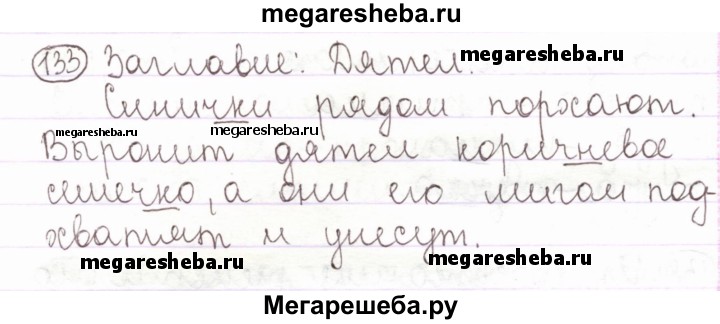 megaresheba.ru
133 Заглавие: Дятел.
megaresheba.ru
Синички рядом порхают.
megaresheba.ru megaresheba.ru megaresheba.ru
Выронит дятел коричневое
семечко, а они его мигом под-
хватят и унесут.
megaresheba.ru megaresheba.ru
Мегарешеба.ру